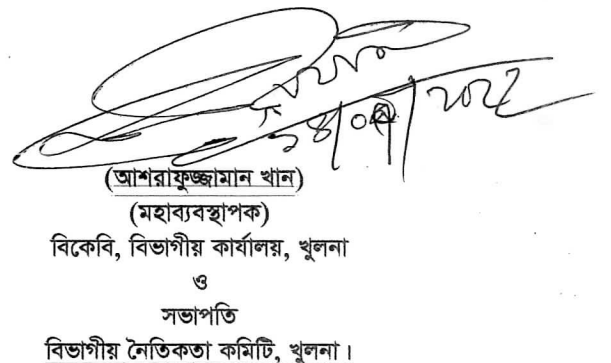 (আশরাফুজ্জামান খান)
(মহাব্যবস্থাপক)
বিকেবি, বিভাগীয় কার্যালয়, খুলনা
ও
সভাপতি
বিভাগীয় নৈতিকতা কমিটি, খুলনা।